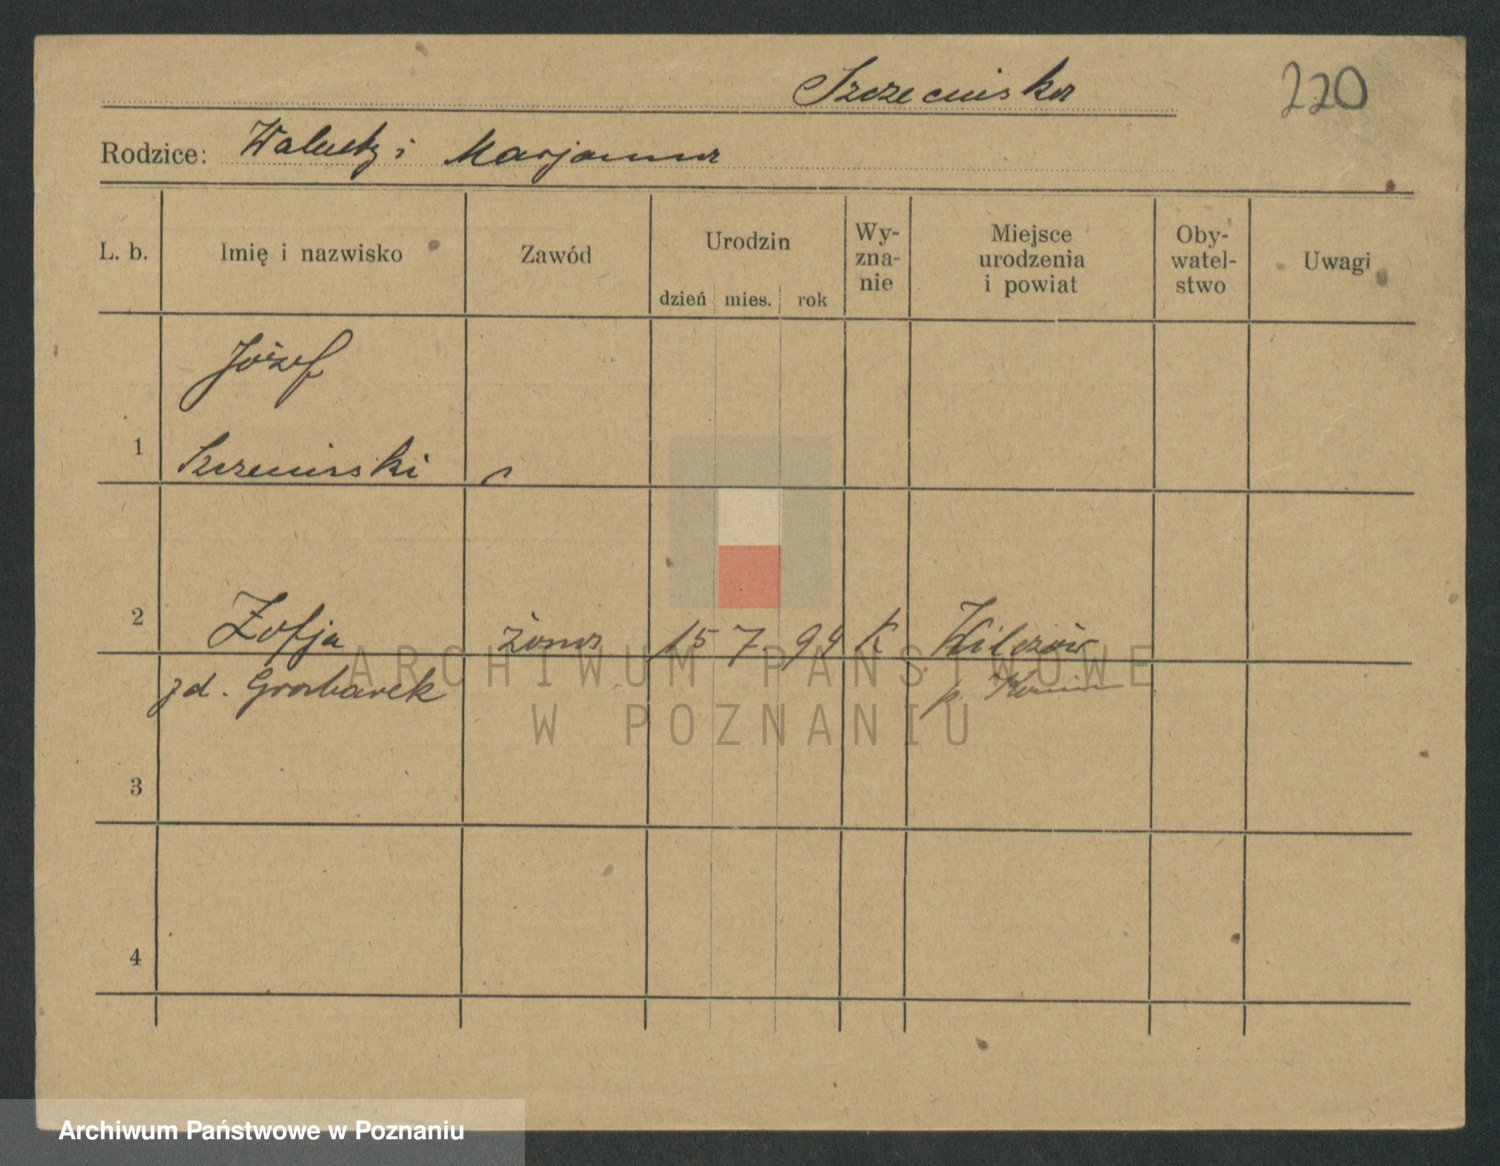 Szczecińska
220
Rodzice: Walenty i Marjanna
L. b. Imię i nazwisko Zawód Urodzin dzień mies. rok Wy-zna-nie Miejsce urodzenia i powiat Oby-watel-stwo Uwagi
Józef
1 Szczeciński
2 Zofja żona 15 7. 94 K Wilczów
zd. Grosbarek p. Konin
3
4
ARCHIWUM PAŃSTWOWE
W POZNANIU
Archiwum Państwowe w Poznaniu